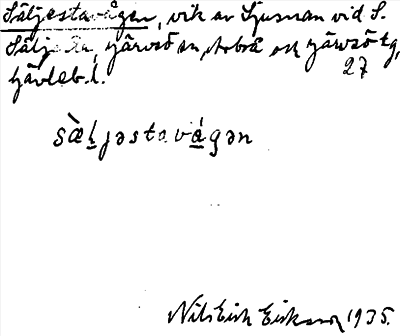 Säljestavågen, vik av Ljusnan vid S.
Säljesta, Järvsö sn, Arbrå och Järvsö tg,
Gävleb. l. 27
sæ̀l̠jəstavágən
Nils Erik Eriksson 1935.